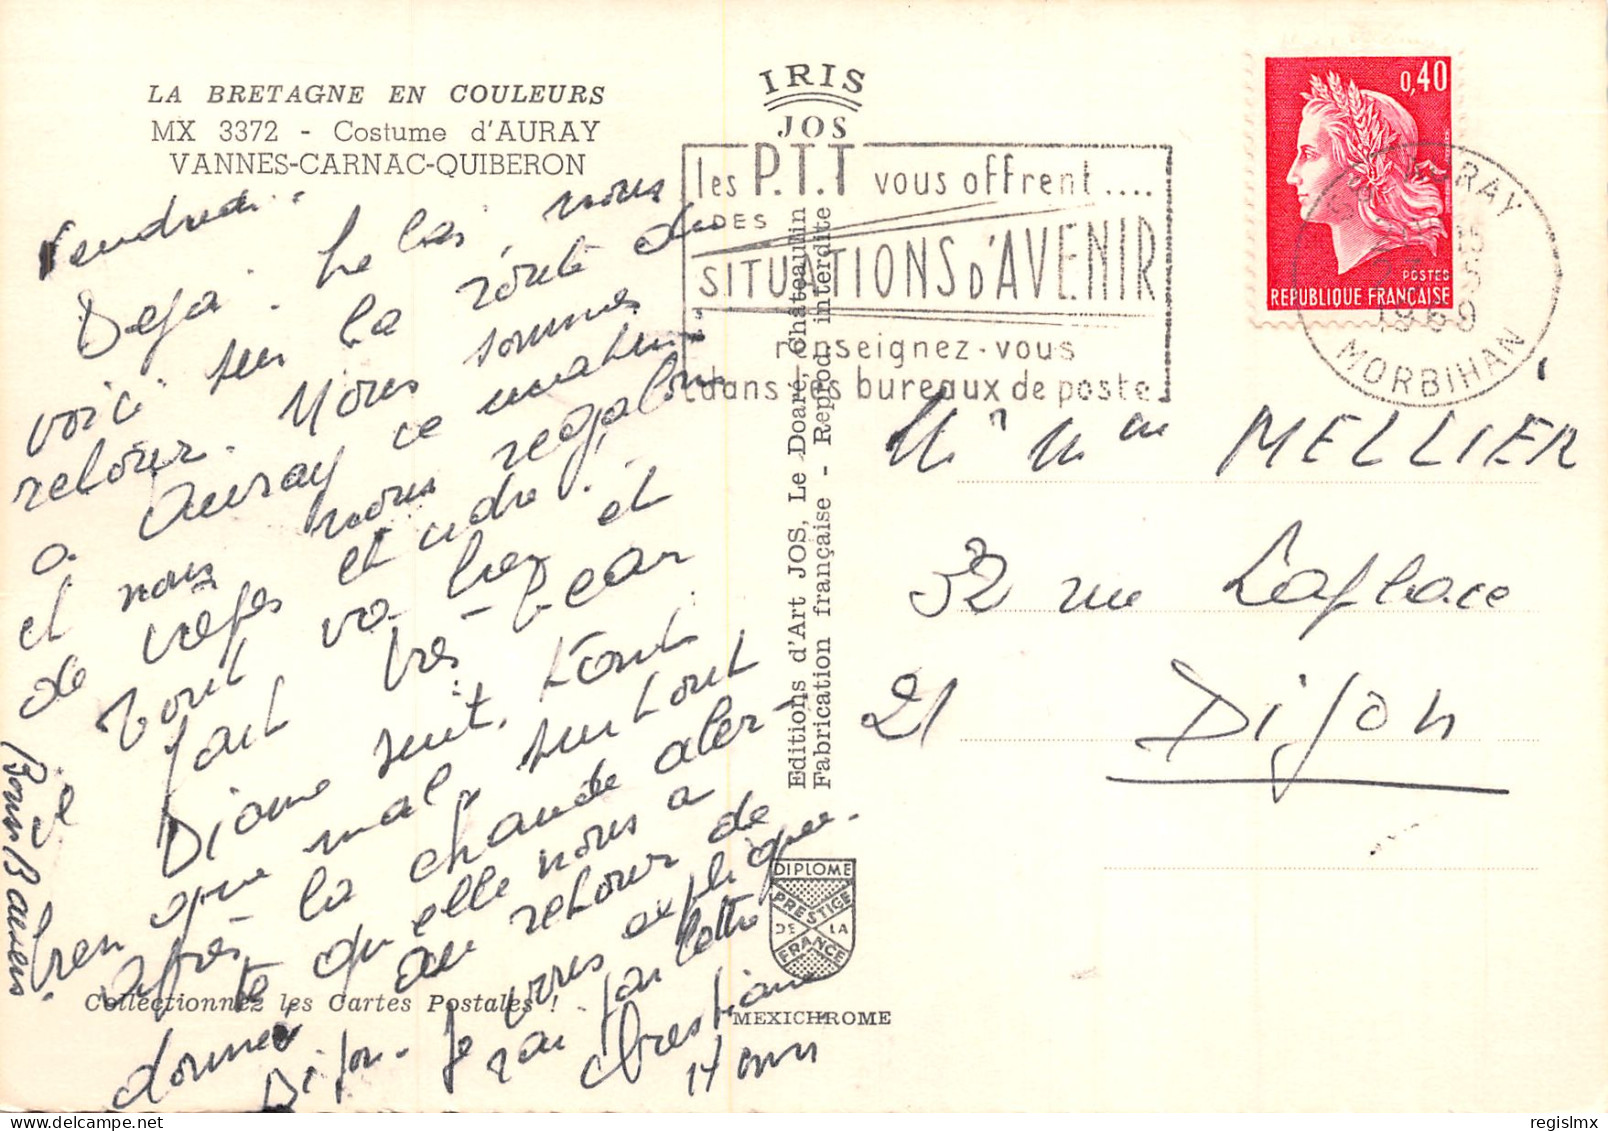 LA BRETAGNE EN COULEURS
MX 3372 - Costume d'AURAY
VANNES-CARNAC-QUIBERON
Vendredi.
Déja. helas nous
voici sur la route du
retour. Nous sommes
a Auray ce matin
et nous nous regalons
de crêpes et cidre!
Tout va bien et
il fait très beau
Diane sent tout
bien que mal surtout
après la chaude aler-
te qu'elle nous a
donnée au retour de
Dijon. Je vous expliquerai par lettre
Christiane
Bons Baisers
Collectionnez les Cartes Postales !
IRIS
JOS
les P.T.T vous offrent ....
DES
SITUATIONS D'AVENIR
renseignez-vous
dans les bureaux de poste
Editions d'Art JOS, Le Doaré, Châteaulin
Fabrication française - Reprod. interdite
DIPLOME
PRESTIGE
DE LA
FRANCE
MEXICHROME
0,40
POSTES
REPUBLIQUE FRANÇAISE
AURAY
15
1969
MORBIHAN
Mr Mme MELLIER
32 rue Laplace
21 Dijon
regislmx